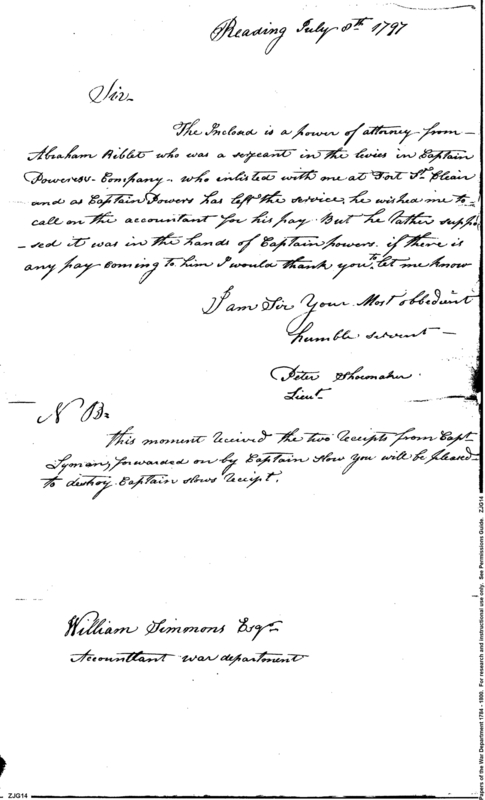 Reading July 8th 1797
Sir
The Inclosd is a power of attorney from
Abraham Riblet who was a sergeant in the levies in Captain
Powerses Company - who enlisted with me at Fort St. Clair
and as Captain Powers has left the service, he wished me to
call on the accountant for his pay. But he rather suppo
- sed it was in the hands of Captain powers. if there is
any pay coming to him I would thank you to let me know
I am Sir Your Most obbedient
humble servent -
Peter Shoemaker
Lieut.
N B:
this moment received the two receipts from Capt
Lyman, forwarded on by Captain Slow you will be pleased
to destroy Captain Slows receipt.
William Simmons Esqr
Accounttant war department
ZJG14
Papers of the War Department 1784 - 1800. For research and instructional use only. See Permissions Guide. ZJG14